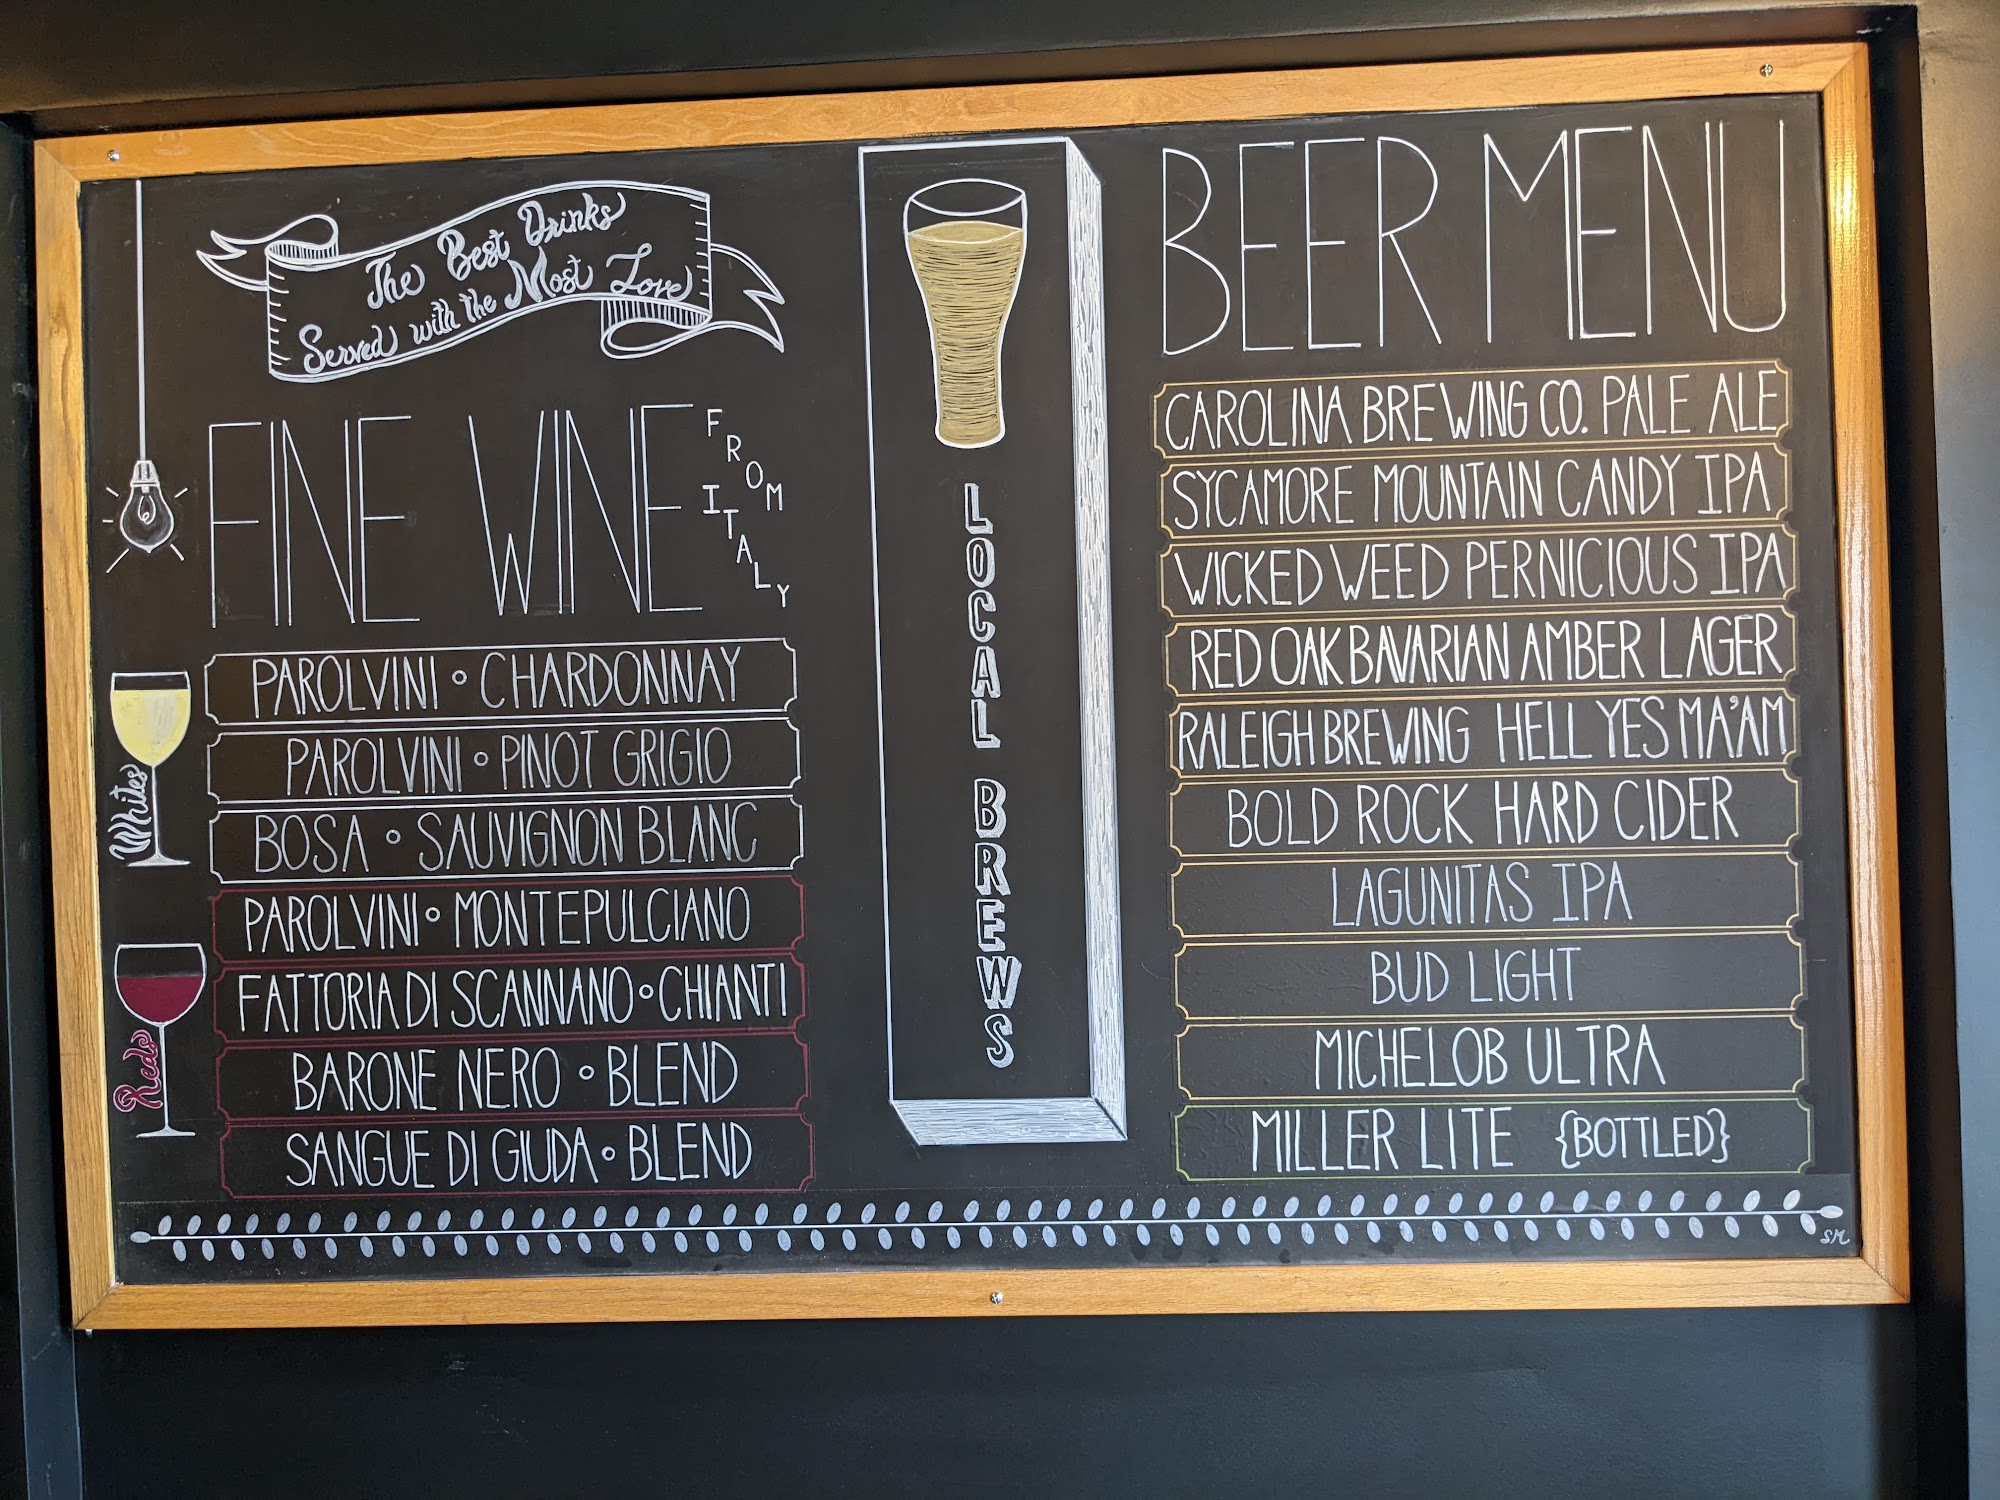 The Best Drinks
Served with the Most Love
FINE WINE
FROM
ITALY
Whites
PAROLVINI ∘ CHARDONNAY
PAROLVINI ∘ PINOT GRIGIO
BOSA ∘ SAUVIGNON BLANC
Reds
PAROLVINI ∘ MONTEPULCIANO
FATTORIA DI SCANNANO ∘ CHIANTI
BARONE NERO ∘ BLEND
SANGUE DI GIUDA ∘ BLEND
LOCAL BREWS
BEER MENU
CAROLINA BREWING CO. PALE ALE
SYCAMORE MOUNTAIN CANDY IPA
WICKED WEED PERNICIOUS IPA
RED OAK BAVARIAN AMBER LAGER
RALEIGH BREWING HELL YES MA'AM
BOLD ROCK HARD CIDER
LAGUNITAS IPA
BUD LIGHT
MICHELOB ULTRA
MILLER LITE {BOTTLED}
SM